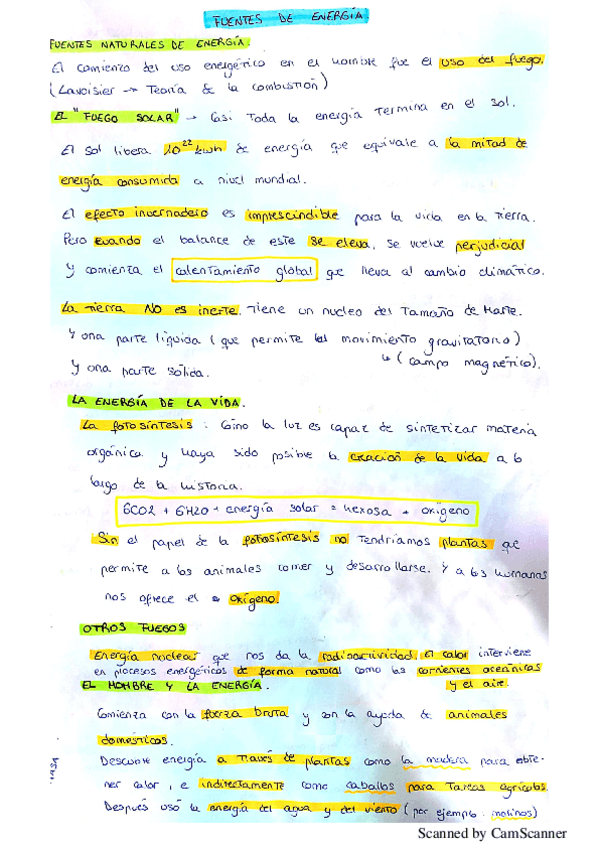 FUENTES DE ENERGÍA
FUENTES NATURALES DE ENERGÍA.
El comienzo del uso energético en el hombre fue el uso del fuego.
(Lavoisier → Teoría de la combustión)
EL "FUEGO SOLAR" → Casi toda la energía termina en el sol.
El sol libera 10²² kwh de energía que equivale a la mitad de
energía consumida a nivel mundial.
El efecto invernadero es imprescindible para la vida en la Tierra.
Pero cuando el balance de este se eleva, se vuelve perjudicial
y comienza el calentamiento global que lleva al cambio climático.
La tierra NO es inerte. Tiene un nucleo del Tamaño de Marte.
Y una parte líquida (que permite los movimiento gravitatorio)
↳ (campo magnético).
Y una parte sólida.
LA ENERGÍA DE LA VIDA.
La fotosíntesis: Cómo la luz es capaz de sintetizar materia
orgánica y haya sido posible la creación de la vida a lo
largo de la historia.
6CO2 + 6H2O + energía solar = hexosa + oxígeno
Sin el papel de la fotosíntesis no Tendríamos plantas que
permite a los animales comer y desarrollarse. Y a los humanos
nos ofrece el oxígeno.
OTROS FUEGOS
Energía nuclear que nos da la radioactividad. El calor interviene
en procesos energéticos de forma natural como las corrientes oceánicas
y el aire.
EL HOMBRE Y LA ENERGÍA.
Comienza con la fuerza bruta y con la ayuda de animales
domésticos.
Descubre energía a través de plantas como la madera para obte-
ner calor, e indirectamente como caballos para Tareas agrícolas.
Después usó la energía del agua y del viento (por ejemplo: molinos)
Scanned by CamScanner